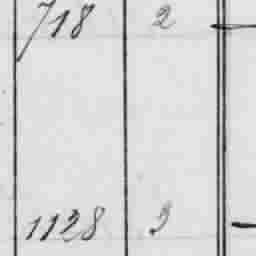 718 2
1128 3